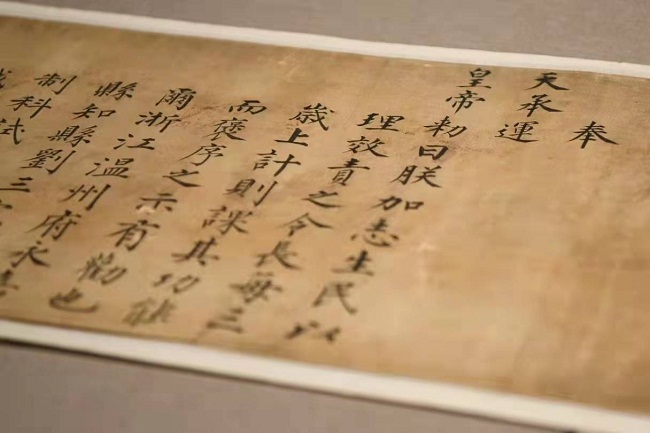 奉
天承運
皇帝勑曰朕加志生民以
理效責之令長每三
歲上計則課其功能
而褒序之示有勸也
爾浙江温州府永嘉
縣知縣劉三
制科試